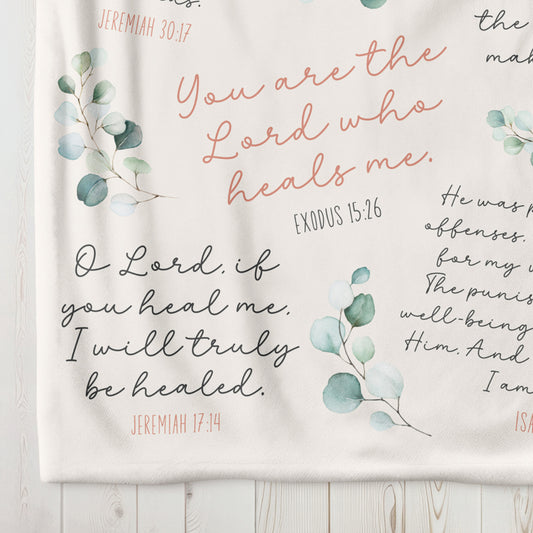 JEREMIAH 30:17
the
You are the
Lord who
heals me.
EXODUS 15:26
O Lord, if
you heal me,
I will truly
be healed.
JEREMIAH 17:14
He was
offenses.
for my
The
well-being
Him. And
I am